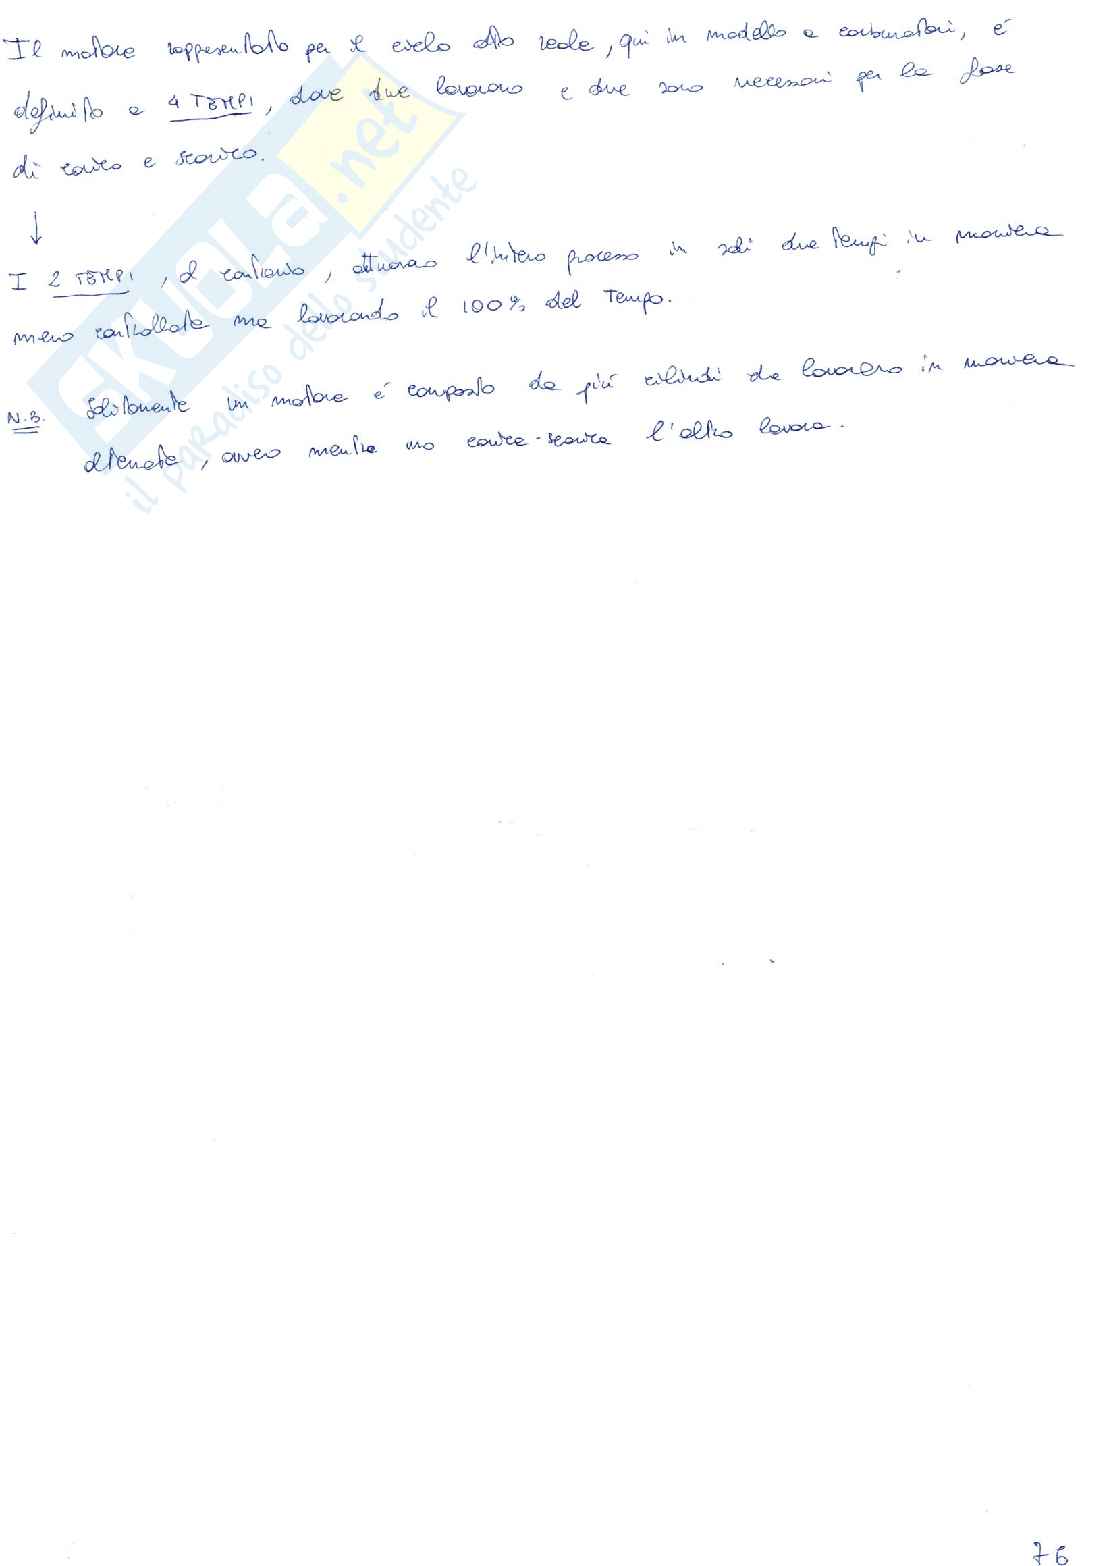 Il motore rappresentato per il ciclo otto reale, qui in modello a carburatori, é
definito a 4 TEMPI, dove due lavorano e due sono necessari per la fase
di carico e scarico.
↓
I 2 TEMPI, al contrario, attuano l'intero processo in soli due tempi in maniera
meno controllata ma lavorando il 100% del Tempo.
N.B. Solitamente un motore é composto da piú cilindri che lavorano in maniera
alternata, ovvero mentre uno carica-scarica l'altro lavora.
SKUOLA.net
il paradiso dello studente
76